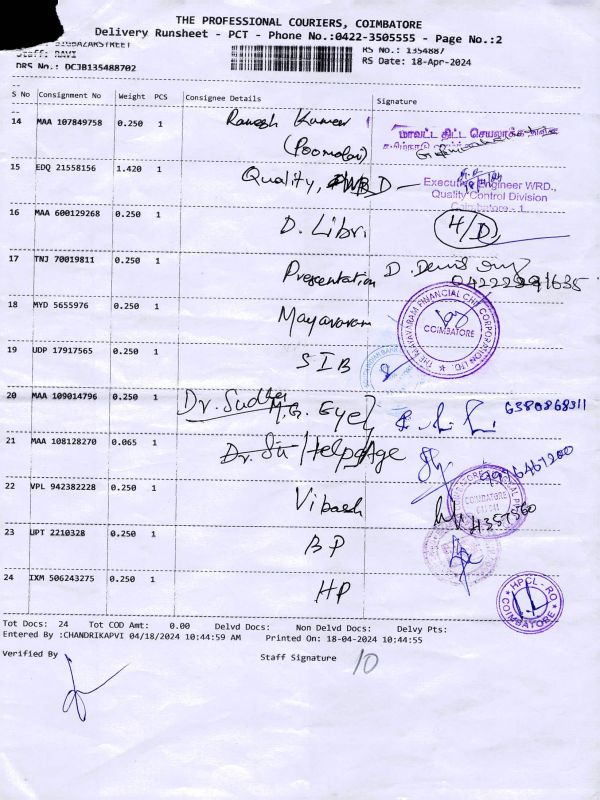 THE PROFESSIONAL COURIERS, COIMBATORE
Delivery Runsheet - PCT - Phone No.:0422-3505555 - Page No.:2
BIGBAZARSTREET
Staff: RAVI
RS No.: 1354887
DRS No.: DCJB135488702
RS Date: 18-Apr-2024
S No Consignment No Weight PCS Consignee Details Signature
14 MAA 107849758 0.250 1 Ramesh Kumar
(Poomalai)
மாவட்ட திட்ட செயலாக்க
15 EDQ 21558156 1.420 1 Quality, WRD
Executive Engineer WRD.,
Quality Control Division
Coimbatore - 1
16 MAA 600129268 0.250 1 D. Libri H/D
17 TNJ 70019811 0.250 1 Presentation D.
18 MYD 5655976 1 Mayavaram
THE MAYAVARAM FINANCIAL CHIT CORPORATION LTD. COIMBATORE
19 UDP 17917565 0.250 1 SIB
20 MAA 109014796 0.250 1 Dr. Sudha
M.G. Eye 6380868311
21 MAA 108128270 0.065 1 Helpage
22 VPL 942382228 0.250 1 Vibash
COIMBATORE
23 UPT 2210328 0.250 1 BP
24 IXM 506243275 0.250 1 HP
HPCL-RO COIMBATORE
Tot Docs: 24 Tot COD Amt: 0.00 Delvd Docs: Non Delvd Docs: Delvy Pts:
Entered By :CHANDRIKAPVI 04/18/2024 10:44:59 AM Printed On: 18-04-2024 10:44:55
Verified By Staff Signature 10